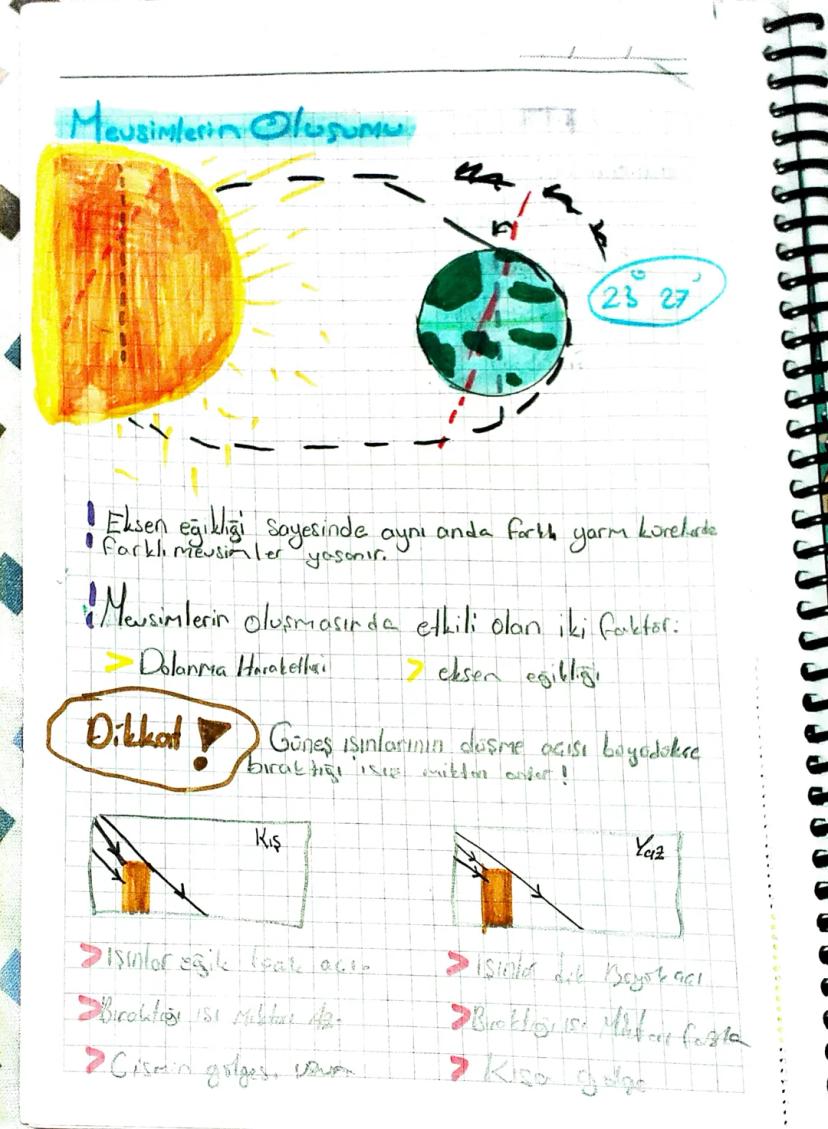 Mevsimlerin Oluşumu
23° 27'
! Eksen eğikliği sayesinde aynı anda farklı yarım kürelerde
farklı mevsimler yaşanır.
! Mevsimlerin oluşmasında etkili olan iki faktör:
> Dolanma Hareketleri > eksen eğikliği
Dikkat! Güneş ışınlarının düşme açısı büyüdükçe
bıraktığı ısı miktarı artar!
Kış Yaz
> Işınlar eğik açı. > ışınlar dik Büyük açı
> Bıraktığı ısı Miktarı Az. > Bıraktığı ısı Miktarı fazla
> Cismin gölgesi uzun > Kısa gölge